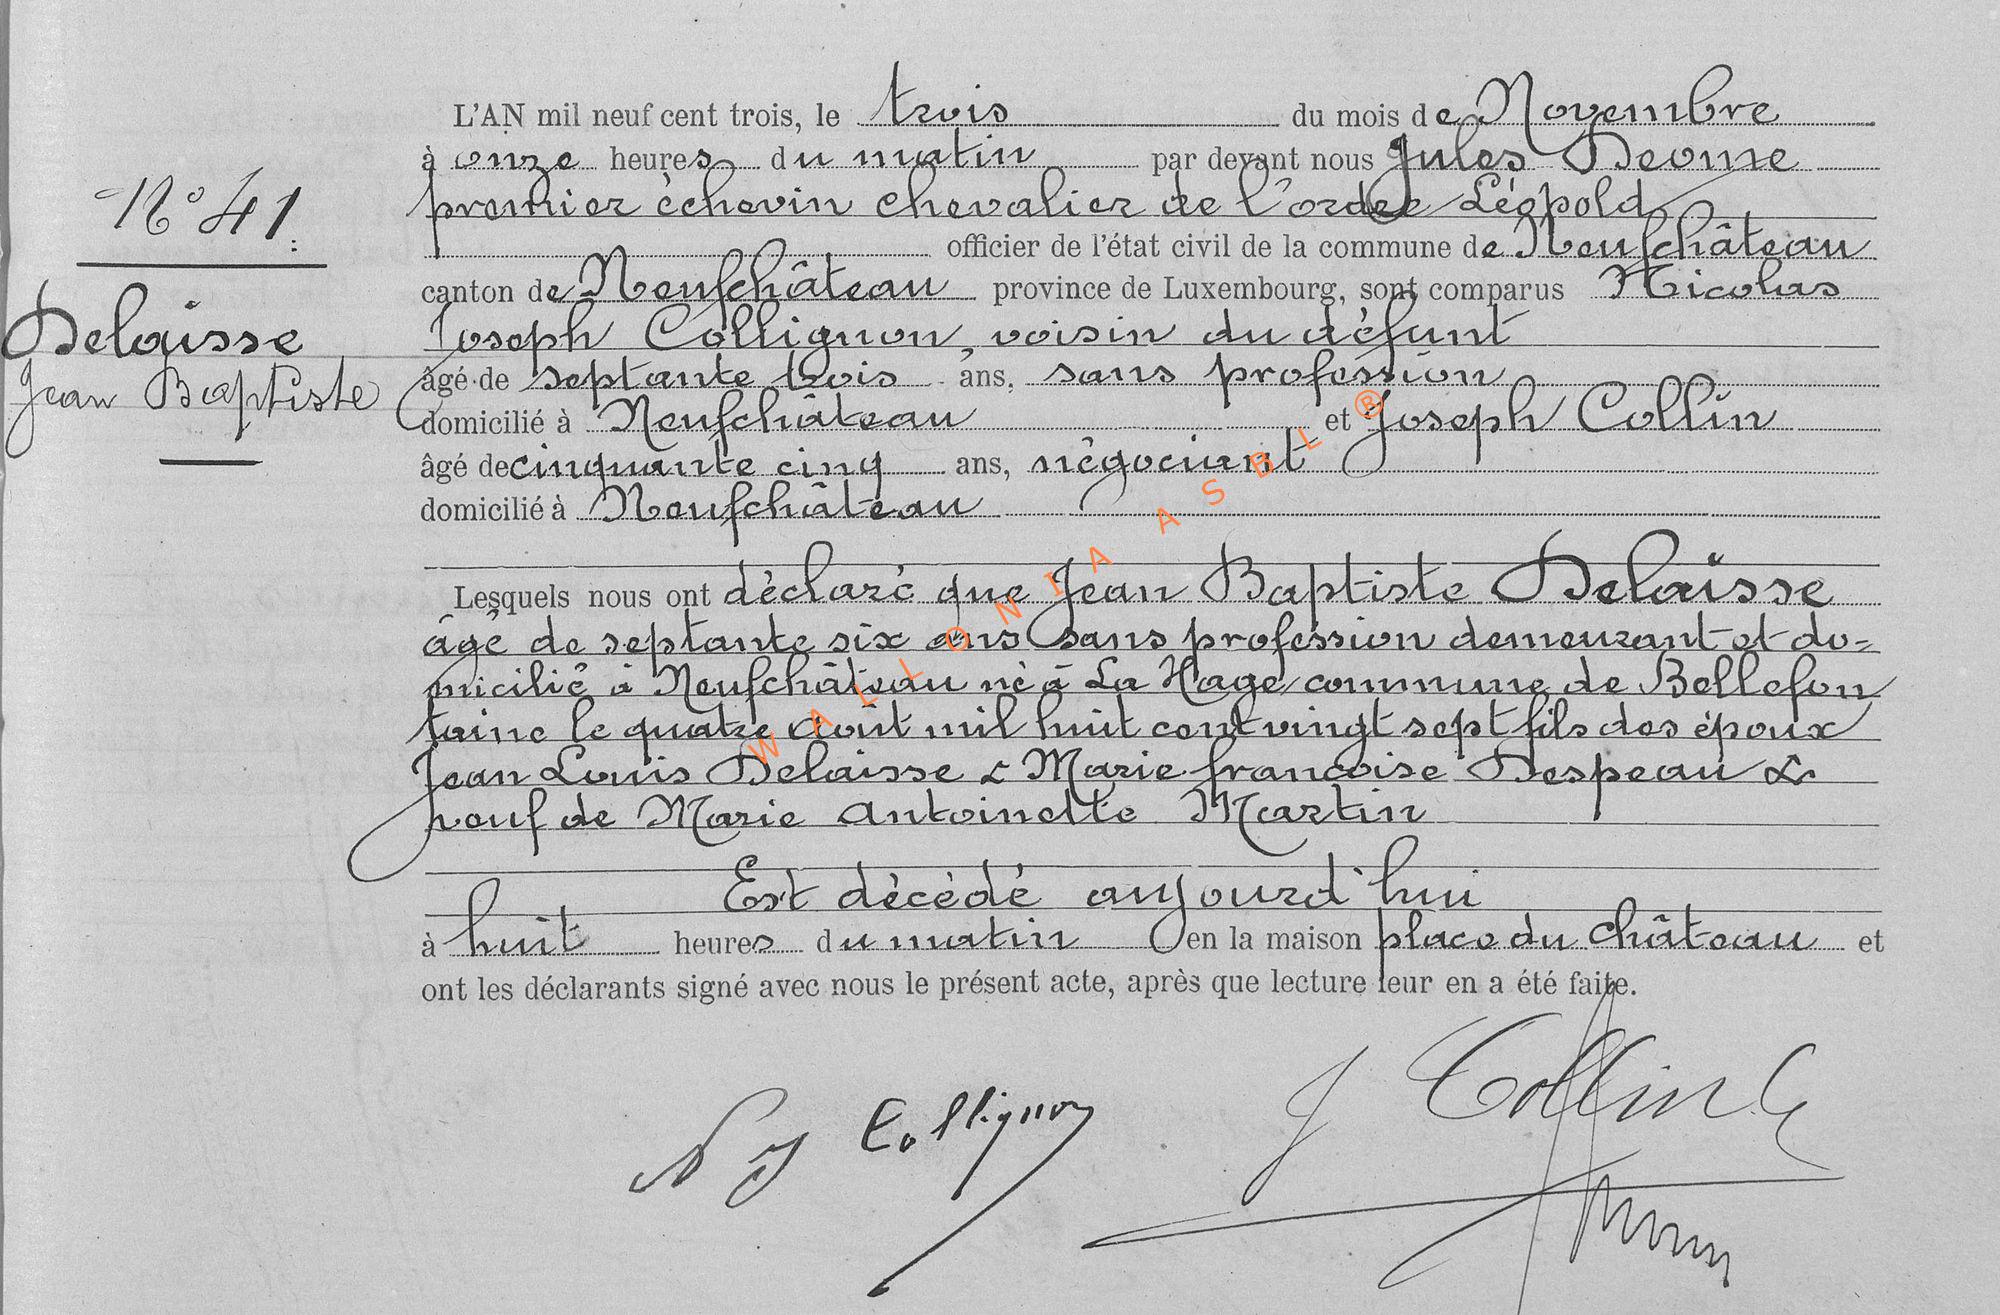 N° 41.
Delaisse
Jean Baptiste
L'AN mil neuf cent trois, le trois du mois de Novembre
à onze heures du matin par devant nous Jules Deome
premier échevin chevalier de l'ordre Léopold
officier de l'état civil de la commune de Neufchâteau
canton de Neufchâteau province de Luxembourg, sont comparus Nicolas
Joseph Collignon, voisin du défunt
âgé de septante trois ans, sans profession
domicilié à Neufchâteau et Joseph Collin
âgé de cinquante cinq ans, négociant
domicilié à Neufchâteau
Lesquels nous ont déclaré que Jean Baptiste Delaisse
âgé de septante six ans sans profession demeurant et do=
micilié à Neufchâteau né à La Hage commune de Bellefon
taine le quatre août mil huit cent vingt sept fils des époux
Jean Louis Delaisse & Marie françoise Despeau &
veuf de Marie Antoinette Martin
Est décédé aujourd'hui
à huit heures du matin en la maison place du Château et
ont les déclarants signé avec nous le présent acte, après que lecture leur en a été faite.
N J Collignon
J Collin
WALLONIA ASBL ®